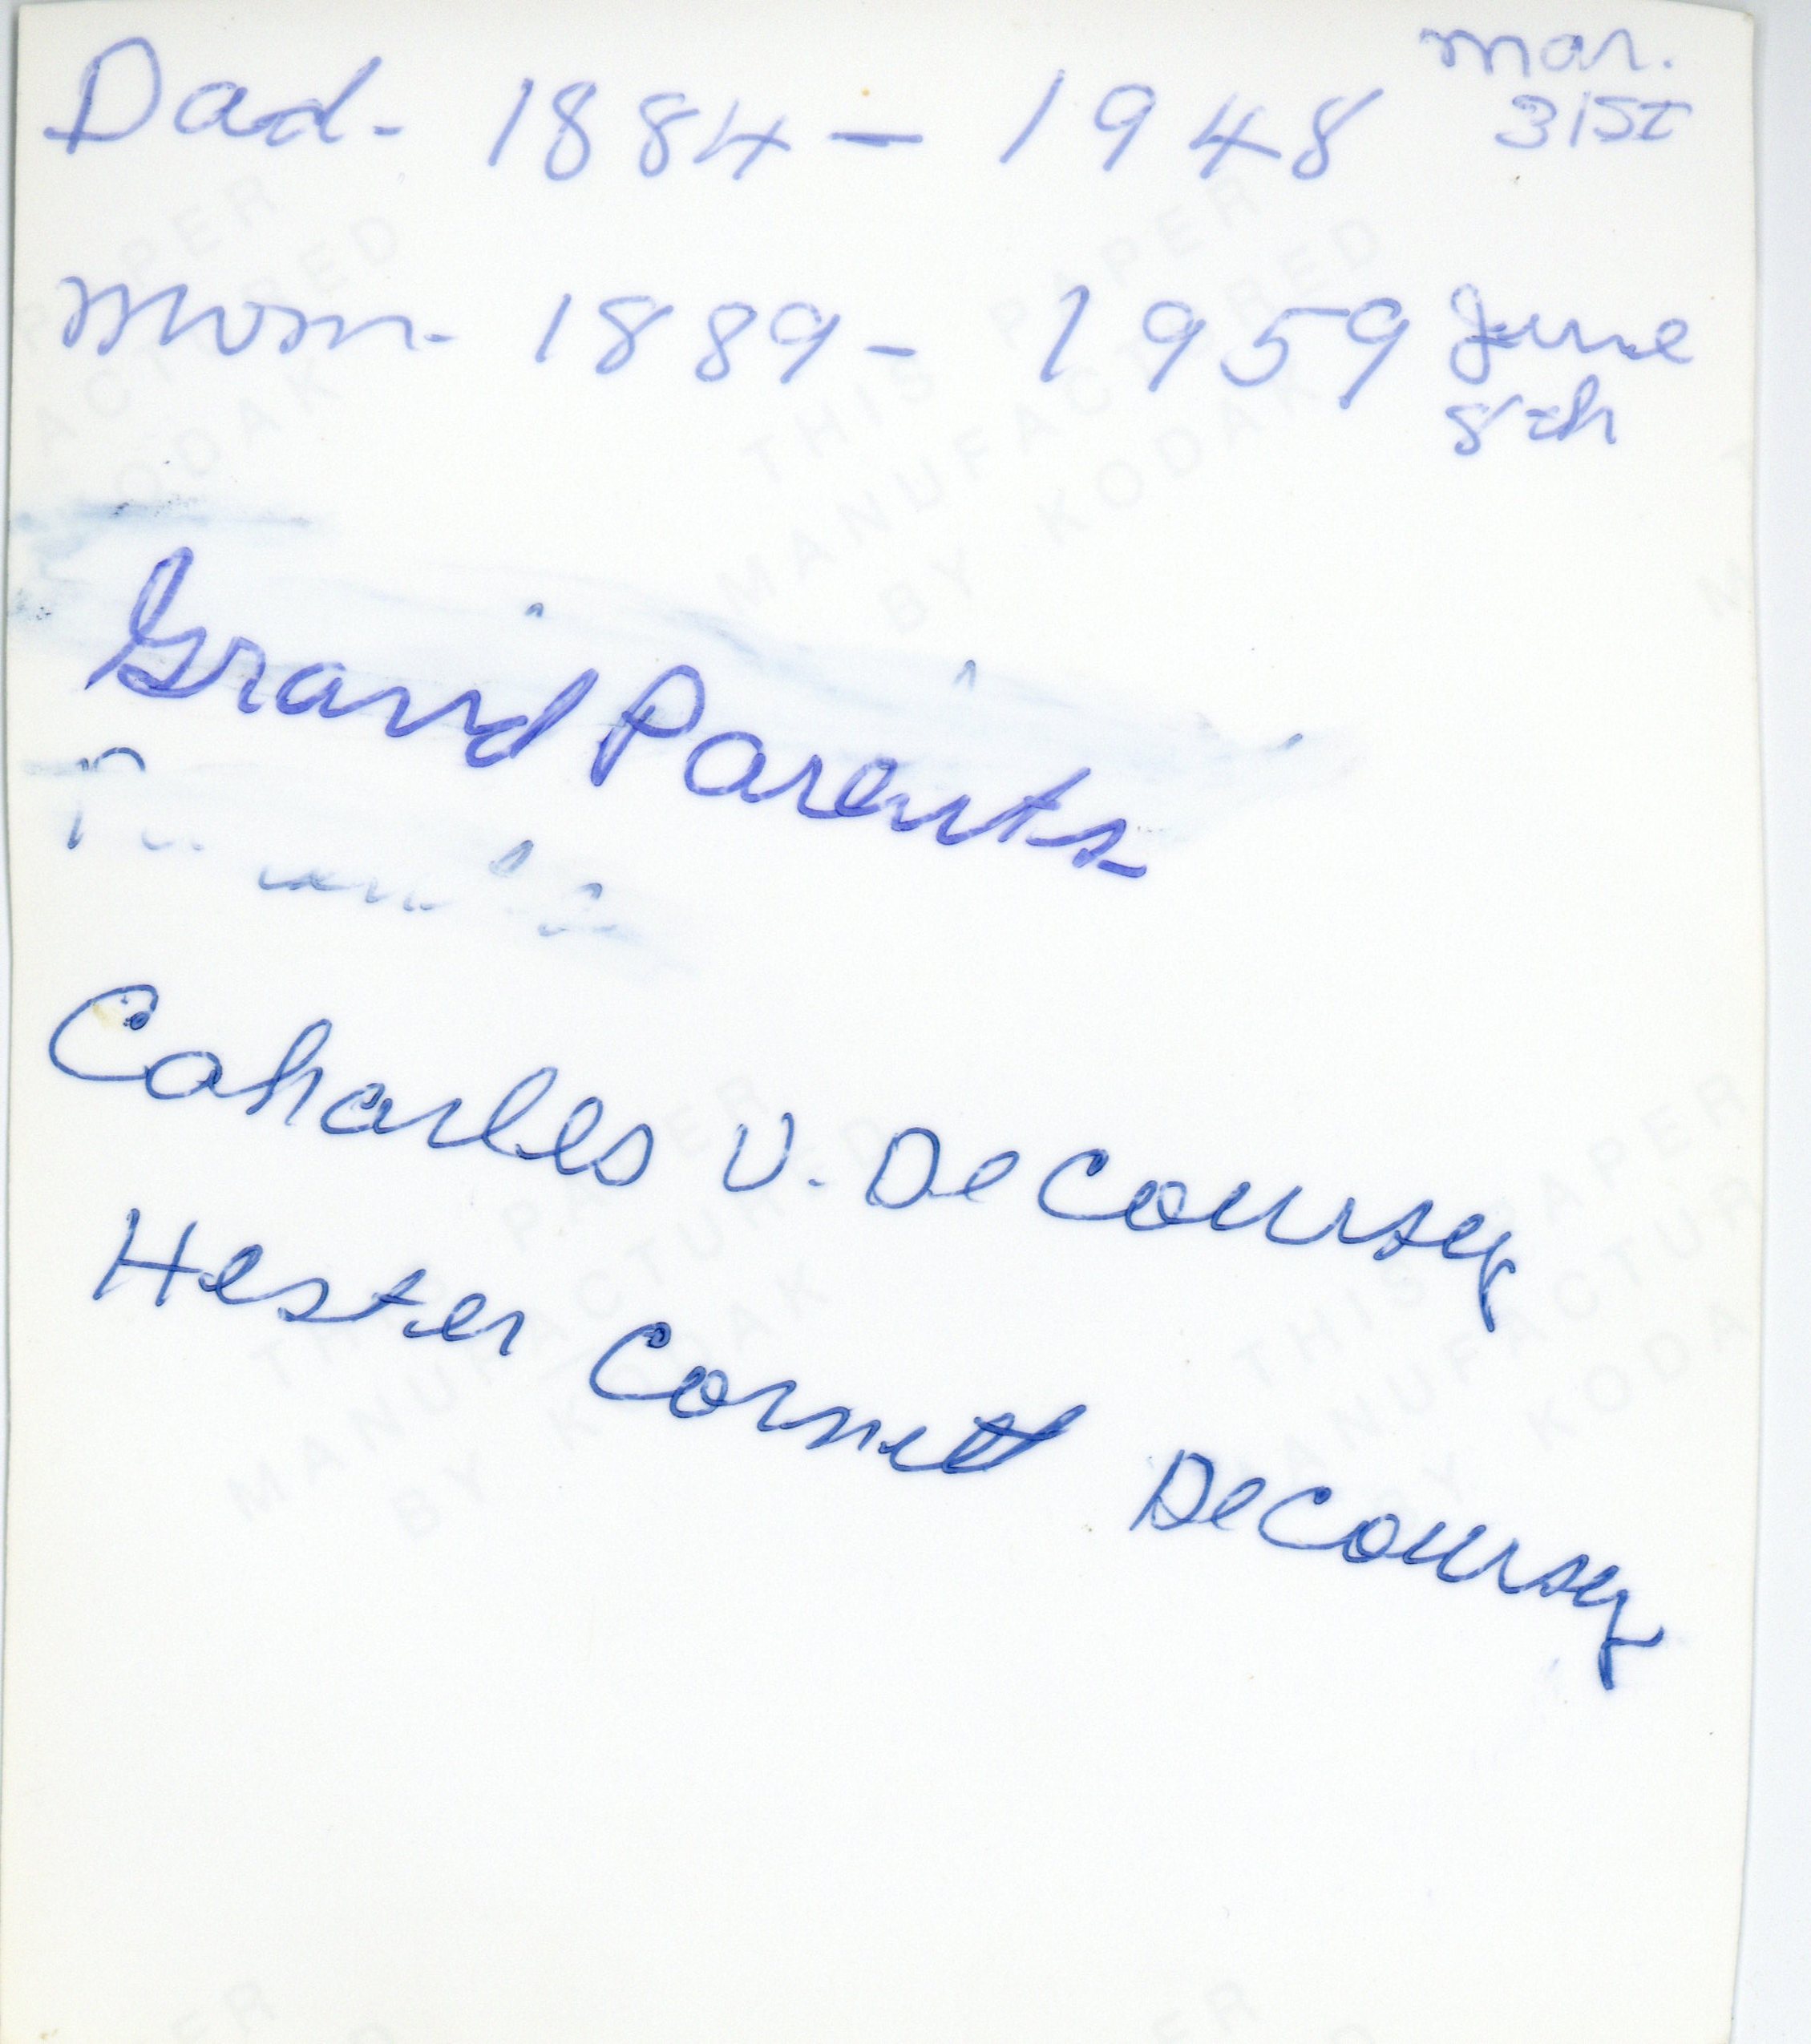 Dad - 1884 - 1948 Mar. 31st
Mom - 1889 - 1959 June 8th
Grand Parents
Caharles V. DeCoursey
Hester Cornett DeCoursey
THIS PAPER
MANUFACTURED
BY KODAK